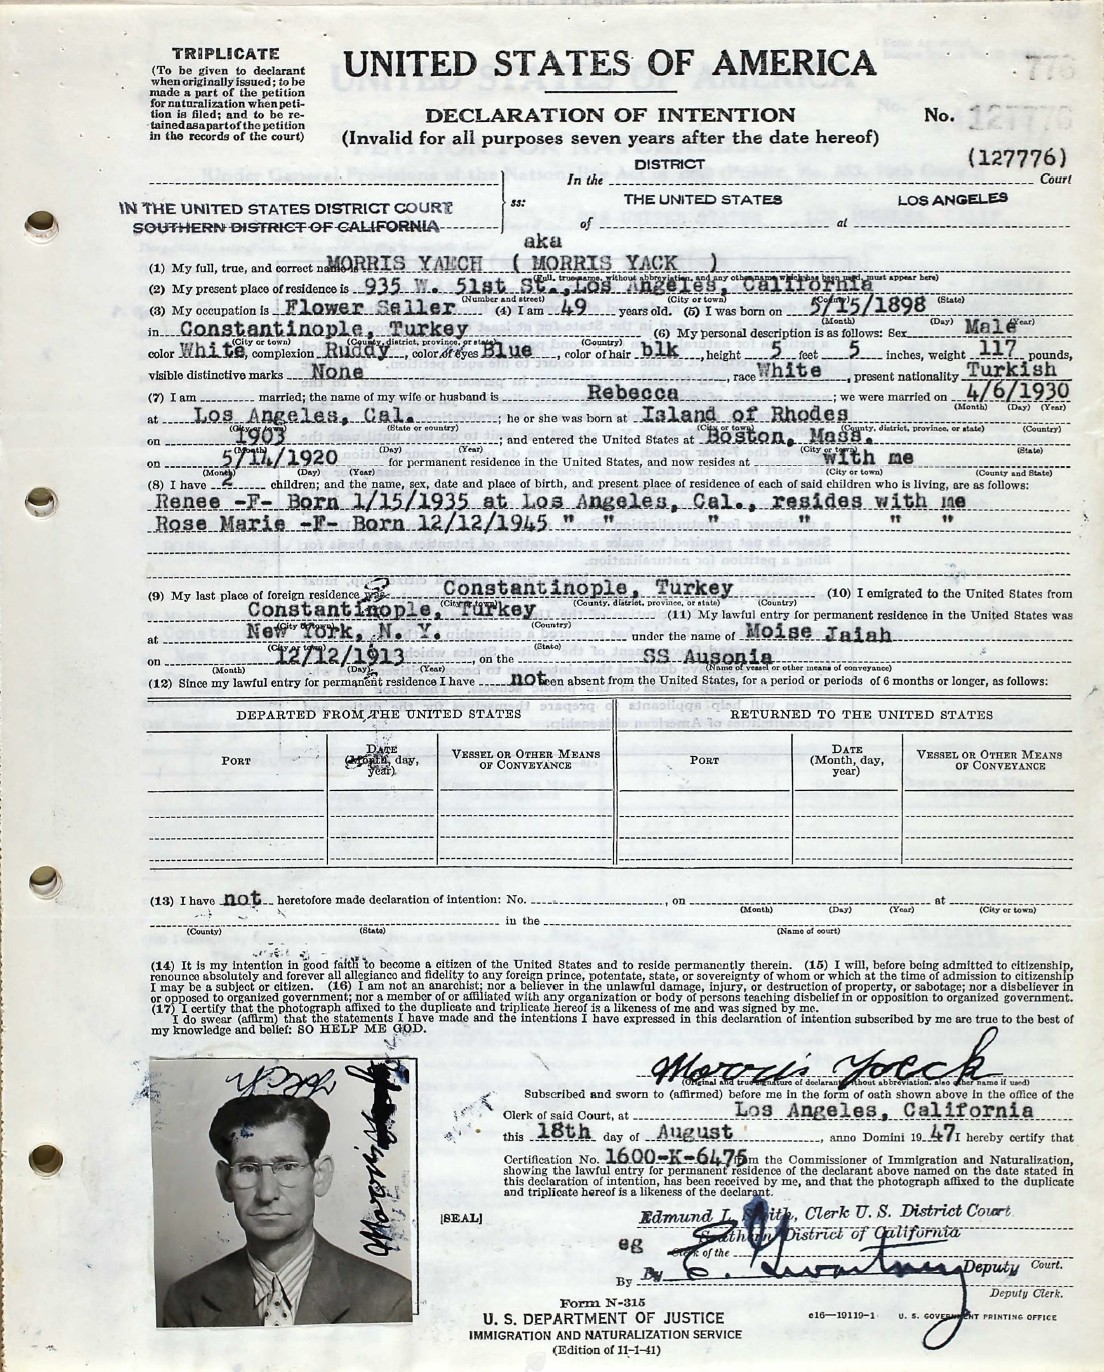 TRIPLICATE
(To be given to declarant
when originally issued; to be
made a part of the petition
for naturalization when peti-
tion is filed; and to be re-
tained as a part of the petition
in the records of the court)
UNITED STATES OF AMERICA
DECLARATION OF INTENTION
(Invalid for all purposes seven years after the date hereof)
No. 127776
(127776)
In the DISTRICT Court
IN THE UNITED STATES DISTRICT COURT
SOUTHERN DISTRICT OF CALIFORNIA
ss:
of THE UNITED STATES at LOS ANGELES
aka
(1) My full, true, and correct name is MORRIS YAECH ( MORRIS YACK )
(Full, true name, without abbreviation, and any other name which has been used, must appear here)
(2) My present place of residence is 935 W. 51st St., Los Angeles, California
(Number and street) (City or town) (County) (State)
(3) My occupation is Flower Seller (4) I am 49 years old. (5) I was born on 5/15/1898
(Month) (Day) (Year)
in Constantinople, Turkey (6) My personal description is as follows: Sex Male
(City or town) (County, district, province, or state) (Country)
color White, complexion Ruddy, color of eyes Blue, color of hair blk, height 5 feet 5 inches, weight 117 pounds,
visible distinctive marks None, race White, present nationality Turkish
(7) I am married; the name of my wife or husband is Rebecca; we were married on 4/6/1930
(Month) (Day) (Year)
at Los Angeles, Cal.; he or she was born at Island of Rhodes
(City or town) (State or country) (City or town) (County, district, province, or state) (Country)
on 1903; and entered the United States at Boston, Mass.
(Month) (Day) (Year) (City or town) (State)
on 5/14/1920 for permanent residence in the United States, and now resides at with me
(Month) (Day) (Year) (City or town) (County and State)
(8) I have 2 children; and the name, sex, date and place of birth, and present place of residence of each of said children who is living, are as follows:
Renee -F- Born 1/15/1935 at Los Angeles, Cal., resides with me
Rose Marie -F- Born 12/12/1945 " " " " " "
(9) My last place of foreign residence was Constantinople, Turkey (10) I emigrated to the United States from
(City or town) (County, district, province, or state) (Country)
Constantinople, Turkey (11) My lawful entry for permanent residence in the United States was
(City or town) (Country)
at New York, N. Y. under the name of Moise Jaiah
(City or town) (State)
on 12/12/1913, on the SS Ausonia
(Month) (Day) (Year) (Name of vessel or other means of conveyance)
(12) Since my lawful entry for permanent residence I have not been absent from the United States, for a period or periods of 6 months or longer, as follows:
DEPARTED FROM THE UNITED STATES RETURNED TO THE UNITED STATES
PORT DATE (Month, day, year) VESSEL OR OTHER MEANS OF CONVEYANCE PORT DATE (Month, day, year) VESSEL OR OTHER MEANS OF CONVEYANCE
(13) I have not heretofore made declaration of intention: No. , on at
(Month) (Day) (Year) (City or town)
in the
(County) (State) (Name of court)
(14) It is my intention in good faith to become a citizen of the United States and to reside permanently therein. (15) I will, before being admitted to citizenship,
renounce absolutely and forever all allegiance and fidelity to any foreign prince, potentate, state, or sovereignty of whom or which at the time of admission to citizenship
I may be a subject or citizen. (16) I am not an anarchist; nor a believer in the unlawful damage, injury, or destruction of property, or sabotage; nor a disbeliever in
or opposed to organized government; nor a member of or affiliated with any organization or body of persons teaching disbelief in or opposition to organized government.
(17) I certify that the photograph affixed to the duplicate and triplicate hereof is a likeness of me and was signed by me.
I do swear (affirm) that the statements I have made and the intentions I have expressed in this declaration of intention subscribed by me are true to the best of
my knowledge and belief: SO HELP ME GOD.
Morris Yaeck
(Original and true signature of declarant without abbreviation, also other name if used)
Subscribed and sworn to (affirmed) before me in the form of oath shown above in the office of the
Clerk of said Court, at Los Angeles, California
this 18th day of August, anno Domini 1947 I hereby certify that
Certification No. 1600-K-6475 from the Commissioner of Immigration and Naturalization,
showing the lawful entry for permanent residence of the declarant above named on the date stated in
this declaration of intention, has been received by me, and that the photograph affixed to the duplicate
and triplicate hereof is a likeness of the declarant.
[SEAL]
Edmund L. Smith, Clerk U. S. District Court
eg Southern District of California
Clerk of the Court.
By By Deputy
Deputy Clerk.
Form N-315
U. S. DEPARTMENT OF JUSTICE
IMMIGRATION AND NATURALIZATION SERVICE
(Edition of 11-1-41)
c16—19119-1 U. S. GOVERNMENT PRINTING OFFICE